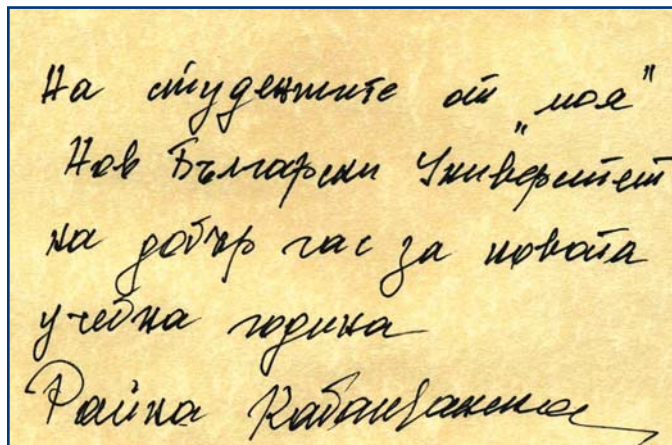 На студентите от „моя"
Нов Български Университет
на добър час за новата
учебна година
Райна Кабаиванска